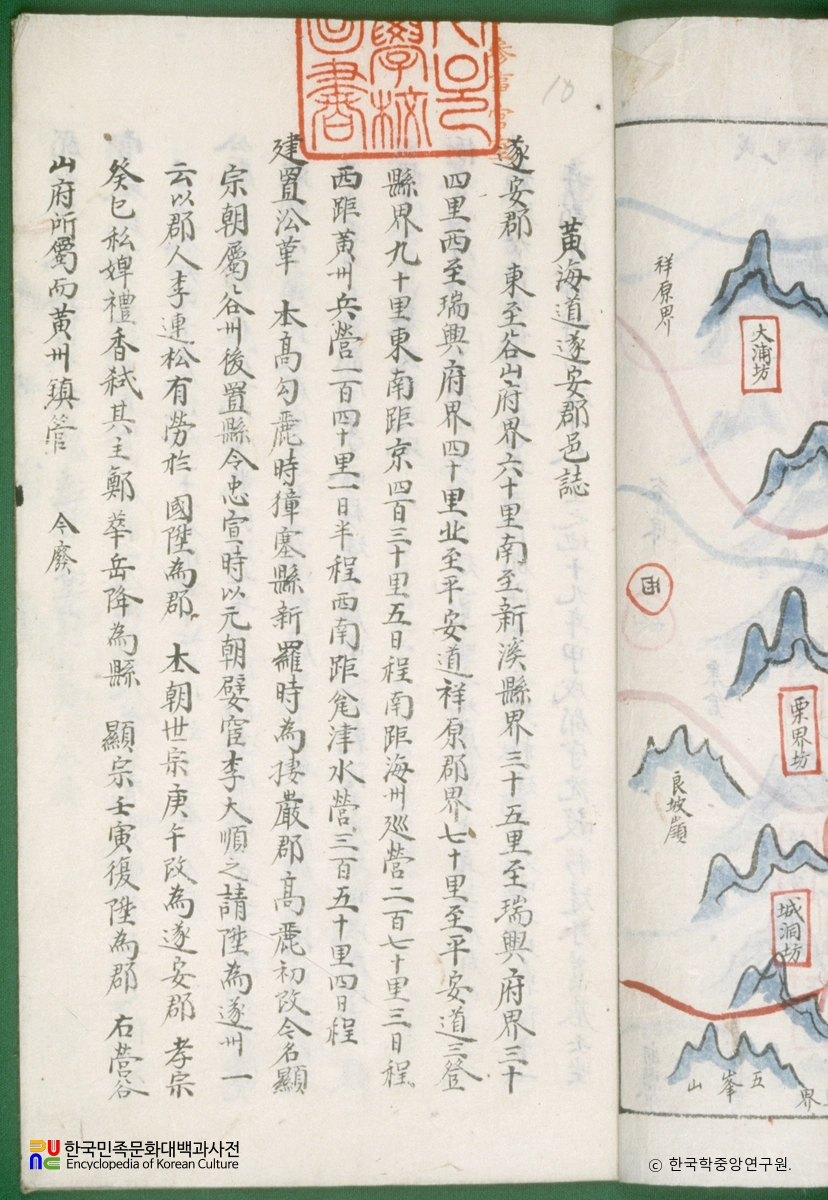 黃海道遂安郡邑誌
遂安郡 東至谷山府界六十里南至新溪縣界三十五里至瑞興府界三十
四里西至瑞興府界四十里北至平安道祥原郡界七十里至平安道三登
縣界九十里東南距京四百三十里五日程南距海州巡營二百七十里三日程
西距黃州兵營一百四十里一日半程西南距瓮津水營三百五十里四日程
建置沿革 本高勾麗時獐塞縣新羅時為捿巖郡高麗初改今名顯
宗朝屬谷州後置縣令忠宣時以元朝嬖宦李大順之請陞為遂州一
云以郡人李連松有勞於 國陞為郡 本朝世宗庚午改為遂安郡 孝宗
癸巳私婢禮香弑其主鄭華岳降為縣 顯宗壬寅復陞為郡 右營谷
山府所屬而黃州鎮管 今廢
10
學校
圖書
祥原界
大浦坊
栗界坊
良坡嶺
城洞坊
五峯山
界
한국민족문화대백과사전
Encyclopedia of Korean Culture
© 한국학중앙연구원.